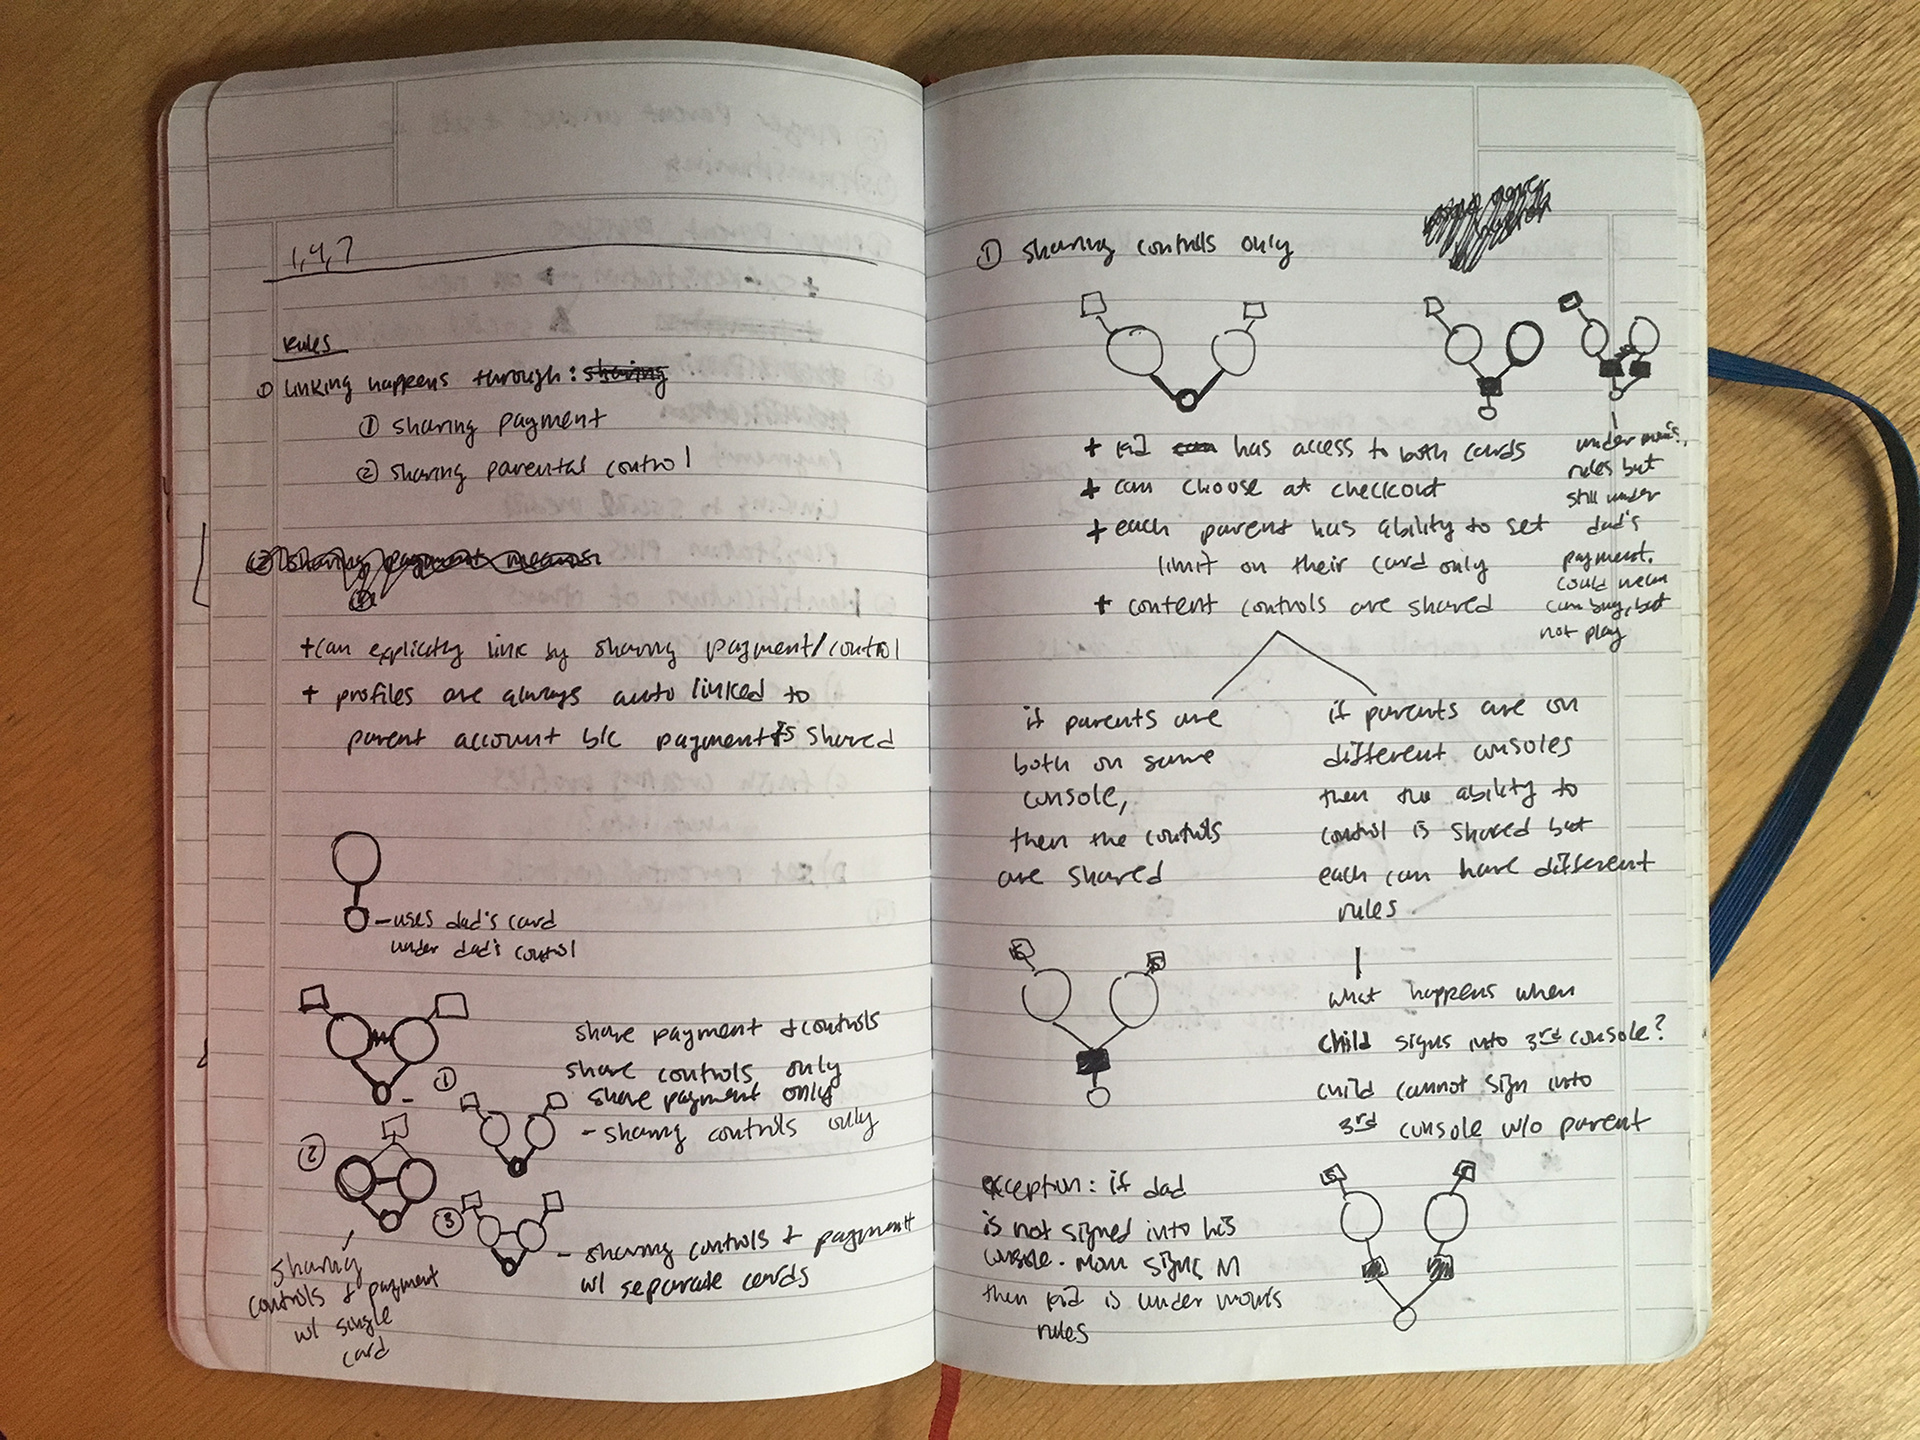 1, 4, 7
Rules
① linking happens through: sharing
① sharing payment
② sharing parental control
② sharing payment means:
+ can explicitly link by sharing payment/control
+ profiles are always auto linked to
parent account b/c payment is shared
- uses dad's card
under dad's control
share payment & controls
share controls only
share payment only
①
- sharing controls only
②
③
- sharing controls & payment
w/ separate cards
sharing
controls & payment
w/ single
card
① sharing controls only
+ kid can has access to both cards
+ can choose at checkout
+ each parent has ability to set
limit on their card only
+ content controls are shared
under mom's
rules but
still under
dad's
payment.
could mean
can buy, but
not play
if parents are
both on same
console,
then the controls
are shared
if parents are on
different consoles
then the ability to
control is shared but
each can have different
rules
what happens when
child signs into 3rd console?
child cannot sign into
3rd console w/o parent
exception: if dad
is not signed into his
console. mom signs in
then kid is under mom's
rules